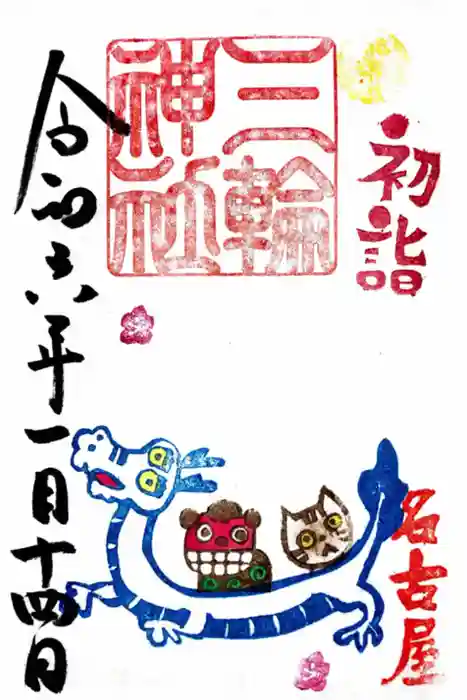 初詣
三輪
神社
令和六年一月十四日
名古屋